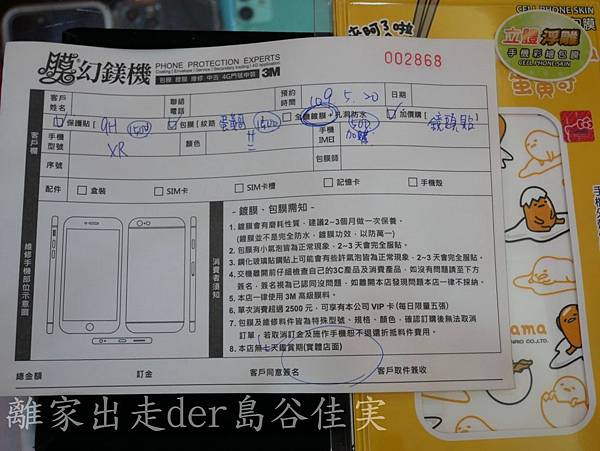 CELL PHONE SKIN
立體浮雕
手機彩繪包膜
CELL PHONE SKIN
膜幻鎂機 PHONE PROTECTION EXPERTS
Coating / Envelope / Service / Secondary / 4G application
包膜 鍍膜 維修 中古 4G門號申裝 3M
002868
客戶姓名 聯絡電話 預約時間 109 5.20 日期
客戶欄
保護貼【 9H 1500 】 包膜【紋路 蛋黃哥 1500 】 全機鍍膜+孔洞防水 500 加價購【 鏡頭貼
手機型號 XR 顏色 手機IMEI 加購
序號 包膜師
配件 盒裝 SIM卡 SIM卡槽 記憶卡 手機殼
維修手機部位示意圖
消費者須知
- 鍍膜、包膜需知 -
1. 鍍膜會有磨耗性質，建議2~3個月做一次保養。
(鍍膜並不是完全防水，鍍膜功效，以防萬一)
2. 包膜有小氣泡皆為正常現象，2~3 天會完全服貼。
3. 鋼化玻璃貼鋼貼上可能會有些許氣泡皆為正常現象，2~3 天會完全服貼。
4. 交機離開前仔細檢查自己的3C產品及消費產品，如沒有問題請至下方
簽名，簽名視為已認同沒問題，如離開本店發現問題本店一律不採納。
5. 本店一律使用 3M 高級膜料。
6. 單次消費超過 2500 元，可享有本公司 VIP 卡 (每日限量五張)
7. 包膜及維修料件皆為特殊型號、規格、顏色，確認訂購後無法取消
訂單，若取消訂金及施作手機恕不退還折抵料件費用。
8. 本店無七天鑑賞期(實體店面)
總金額 訂金 客戶同意簽名 客戶取件簽收
離家出走der島谷佳実